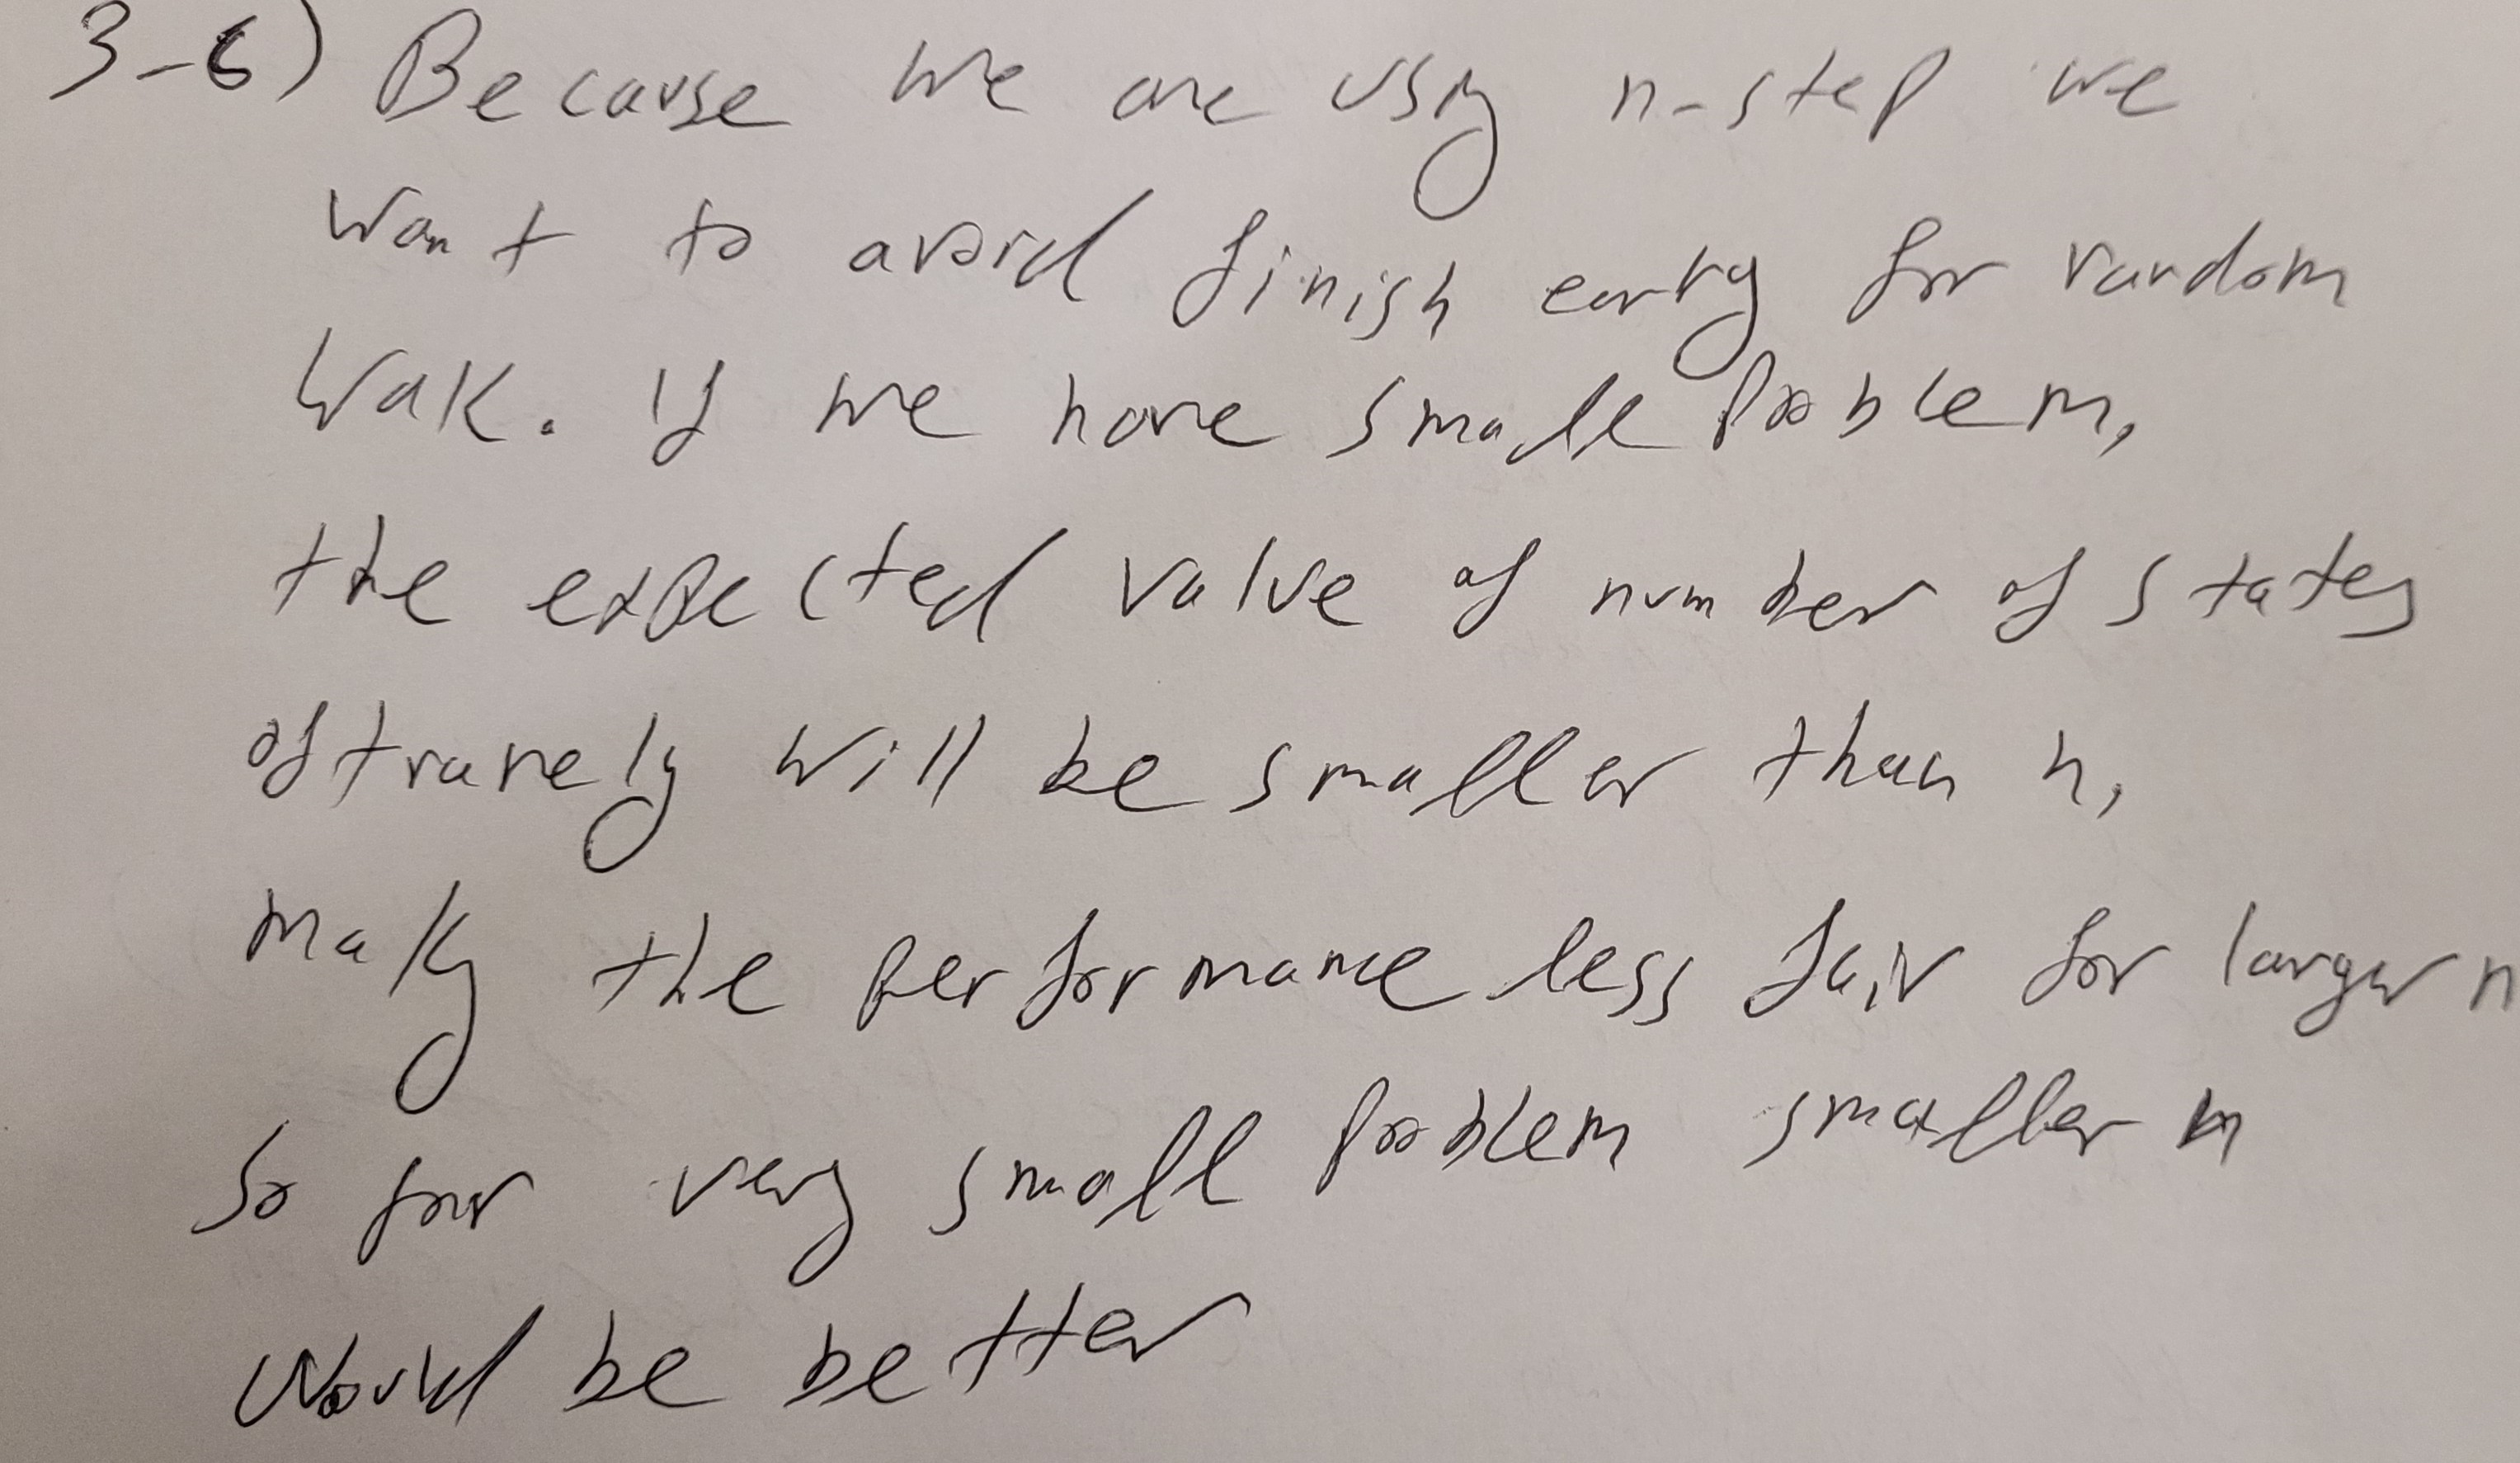 3-6) Because we are using n-step we
want to avoid finish early for random
Wak. If we have small problem,
the expected value of number of states
of travely will be smaller than n,
making the performance less fair for larger n
So for very small problem smaller n
Would be better